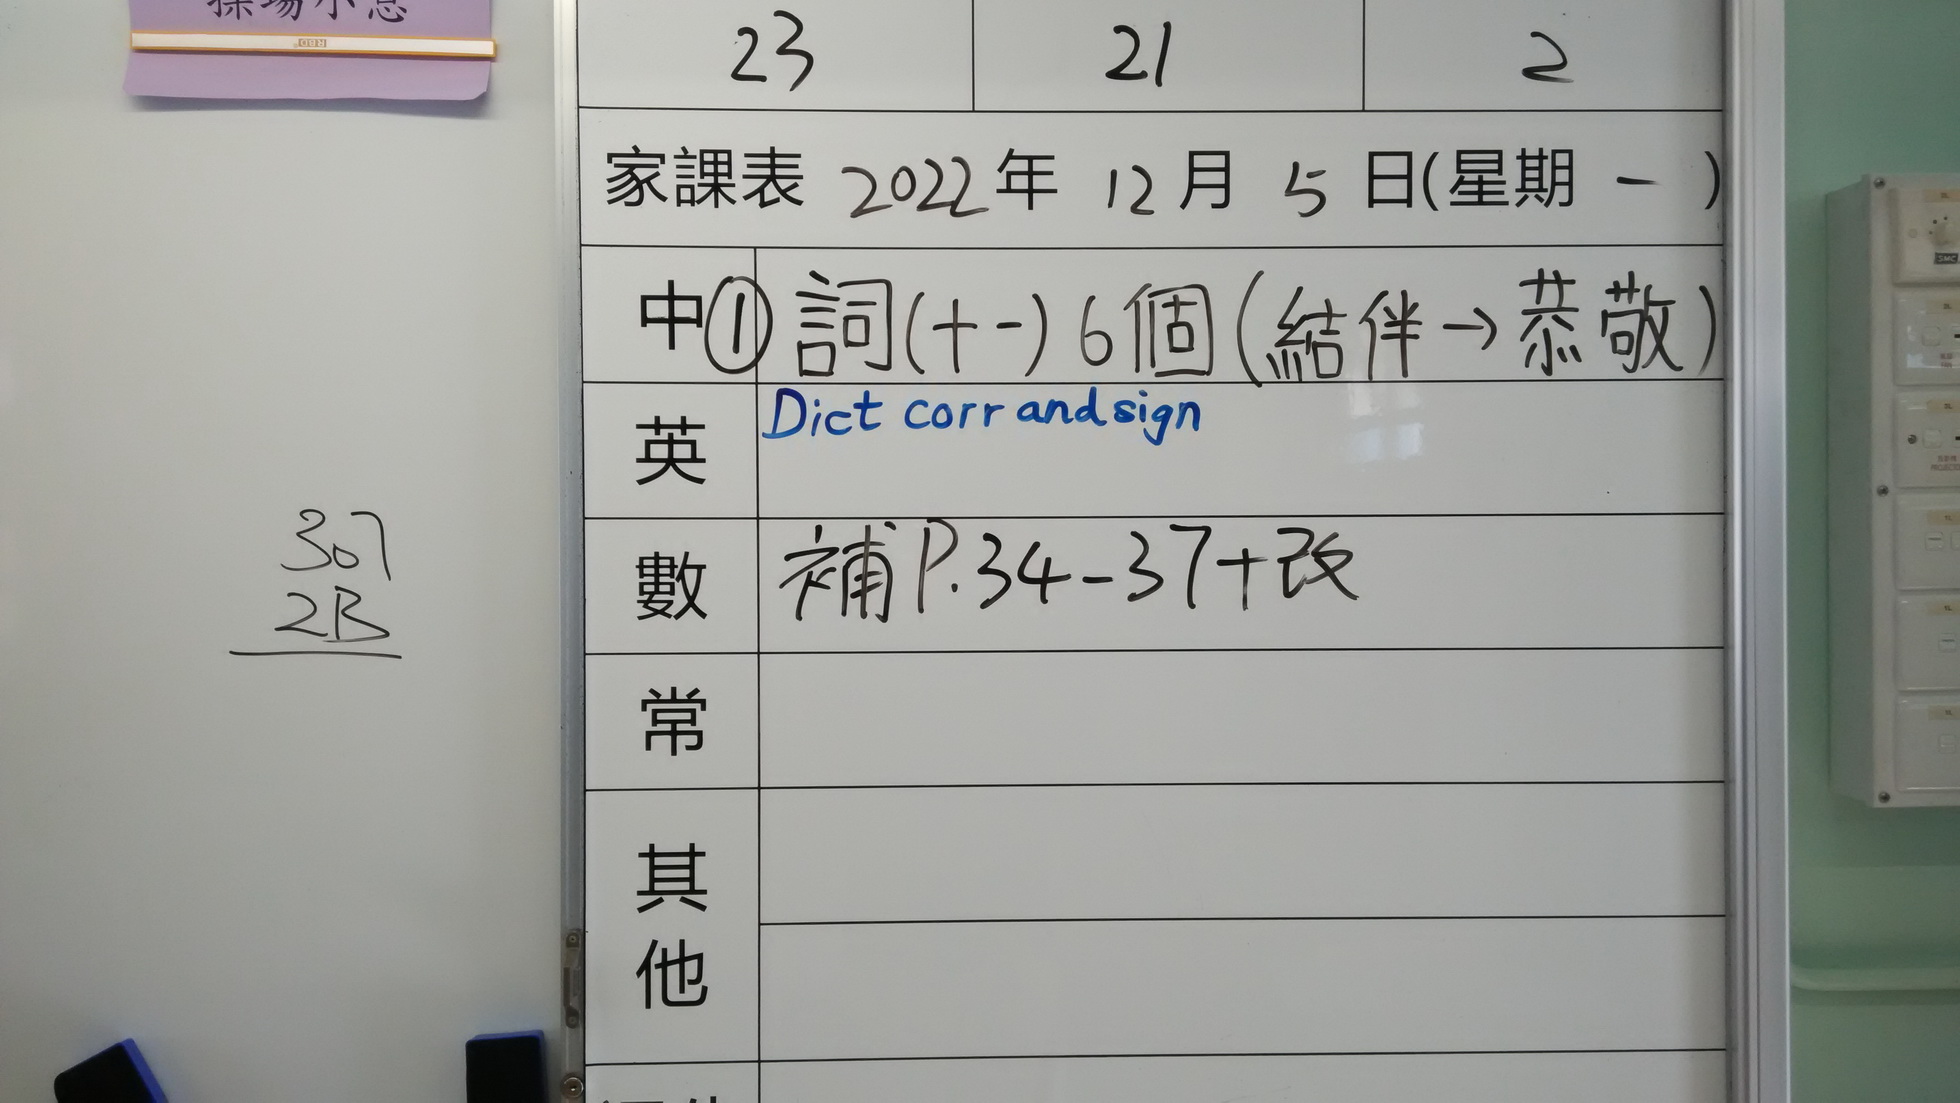 操場小息
23 21 2
家課表 2022年 12月 5日(星期 一 )
中 ① 詞(十一) 6個(結伴→恭敬)
英 Dict corr and sign
數 補 P.34-37+改
307
2B
常
其
他